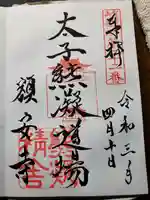 奉拝
令和三年
四月十日
太子熊凝道場
額安寺
精舎